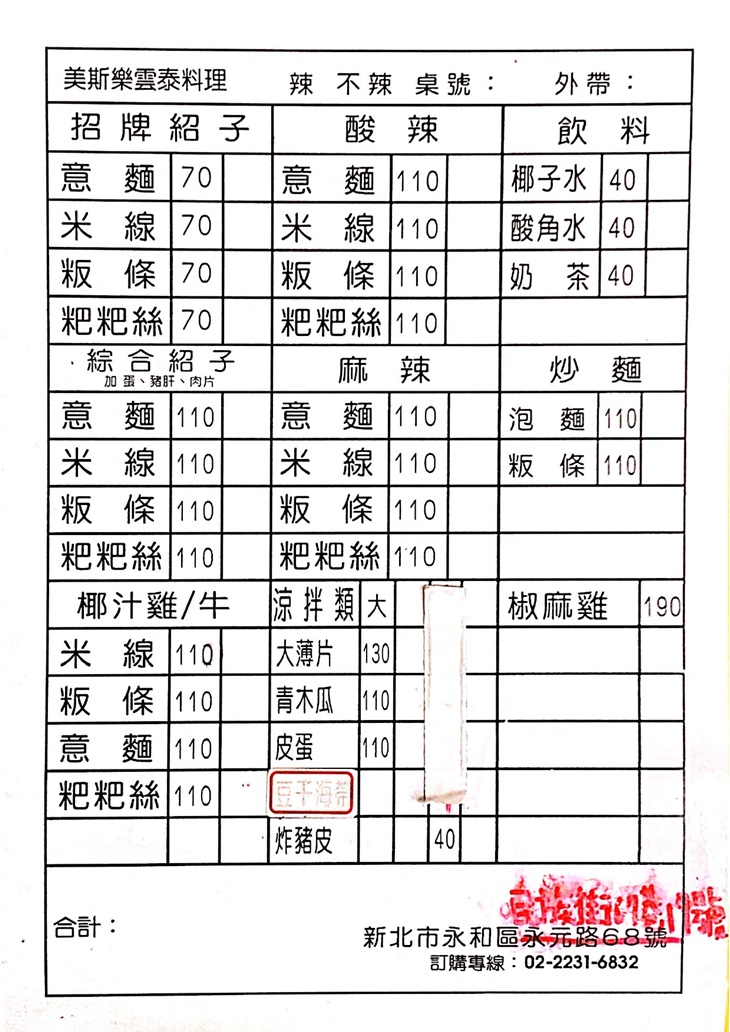 美斯樂雲泰料理 辣 不辣 桌號： 外帶：
招牌紹子 酸辣 飲料
意麵 70 意麵 110 椰子水 40
米線 70 米線 110 酸角水 40
粄條 70 粄條 110 奶茶 40
粑粑絲 70 粑粑絲 110
綜合紹子 麻辣 炒麵
加蛋、豬肝、肉片
意麵 110 意麵 110 泡麵 110
米線 110 米線 110 粄條 110
粄條 110 粄條 110
粑粑絲 110 粑粑絲 110
椰汁雞/牛 涼拌類 大 椒麻雞 190
米線 110 大薄片 130
粄條 110 青木瓜 110
意麵 110 皮蛋 110
粑粑絲 110 豆干海帶
炸豬皮 40
合計：
新北市永和區永元路68號
訂購專線：02-2231-6832